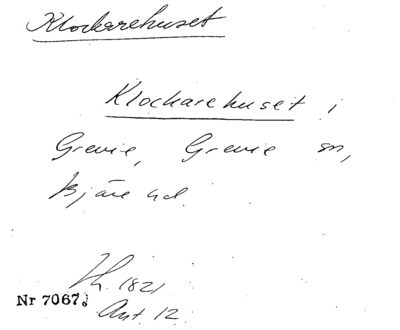 Klockarehuset
Klockarehuset i
Grevie, Grevie sn,
Bjäre hd.
1821
Nr 7067.
Ant. 12.